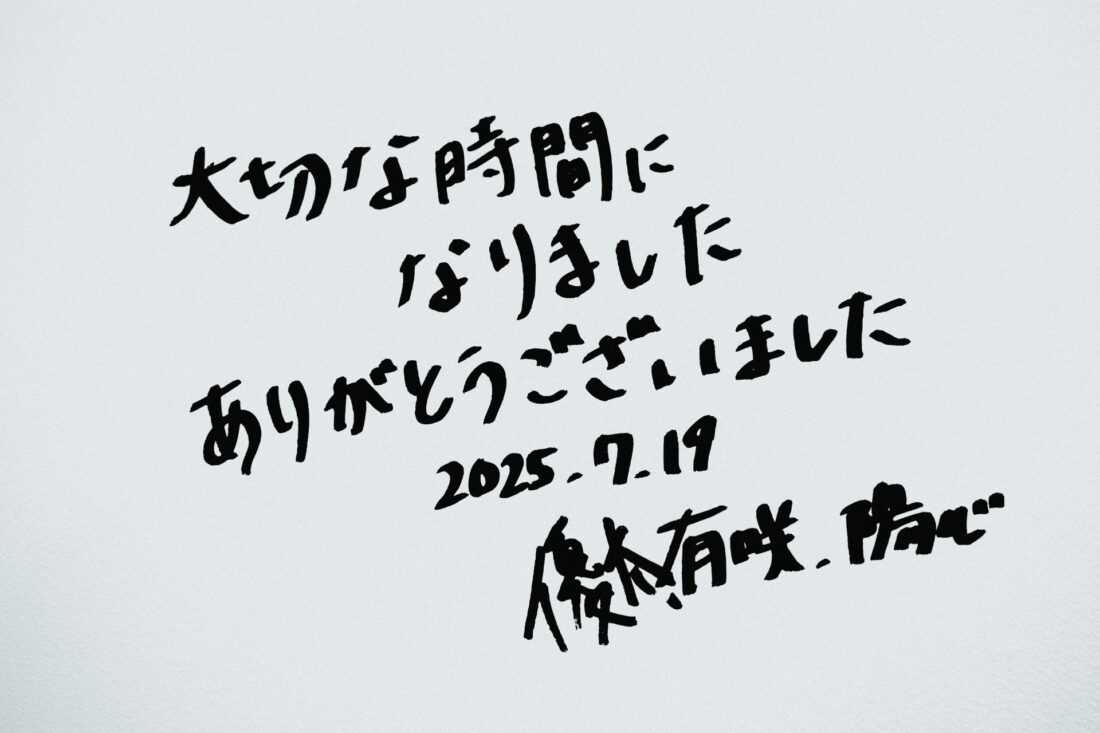 大切な時間に
なりました
ありがとうございました
2025.7.19
優太.有咲.陽心